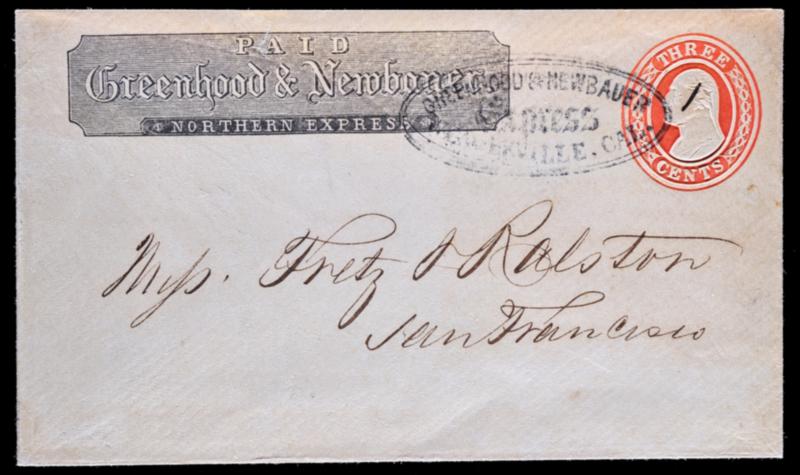 PAID
Greenhood & Newbauer
NORTHERN EXPRESS
GREENHOOD & NEWBAUER
Express
CAL.
THREE
CENTS
Mess. Fretz & Ralston
San Francisco